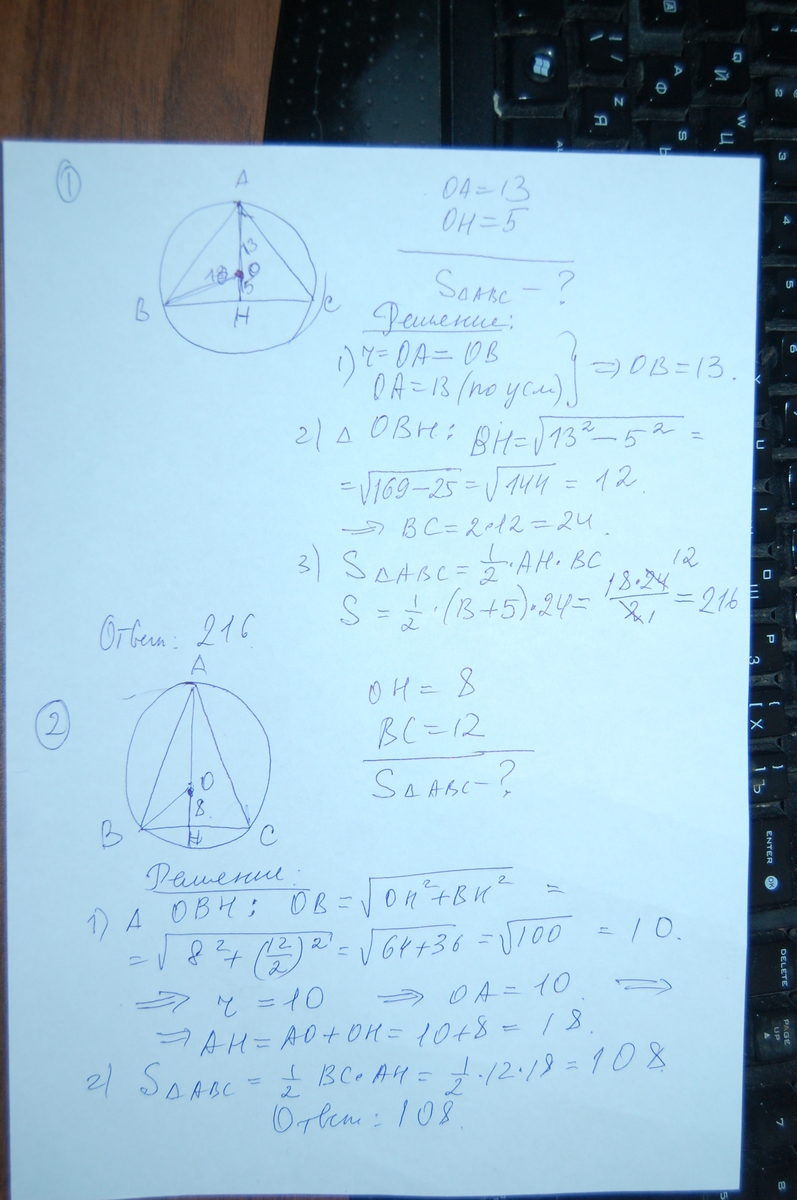 1
A
13
13 O
5
B
H
C
OA = 13
OH = 5
S△ABC - ?
Решение:
1) r = OA = OB
OA = 13 (по усл) } ⇒ OB = 13.
2) △ OBH: BH = √13² - 5² =
= √169 - 25 = √144 = 12.
⇒ BC = 2·12 = 24.
3) S△ABC = 1/2 · AH · BC
S = 1/2 · (13 + 5) · 24 = 18 · 24 12 / 2 1 = 216
Ответ: 216.
2
A
O
8
B
H
C
OH = 8
BC = 12
S△ABC - ?
Решение:
1) △ OBH: OB = √OH² + BH² =
= √8² + (12/2)² = √64 + 36 = √100 = 10.
⇒ r = 10 ⇒ OA = 10. ⇒
⇒ AH = AO + OH = 10 + 8 = 18.
2) S△ABC = 1/2 BC · AH = 1/2 · 12 · 18 = 108
Ответ: 108.
ENTER
OK
DELETE
PAGE
UP